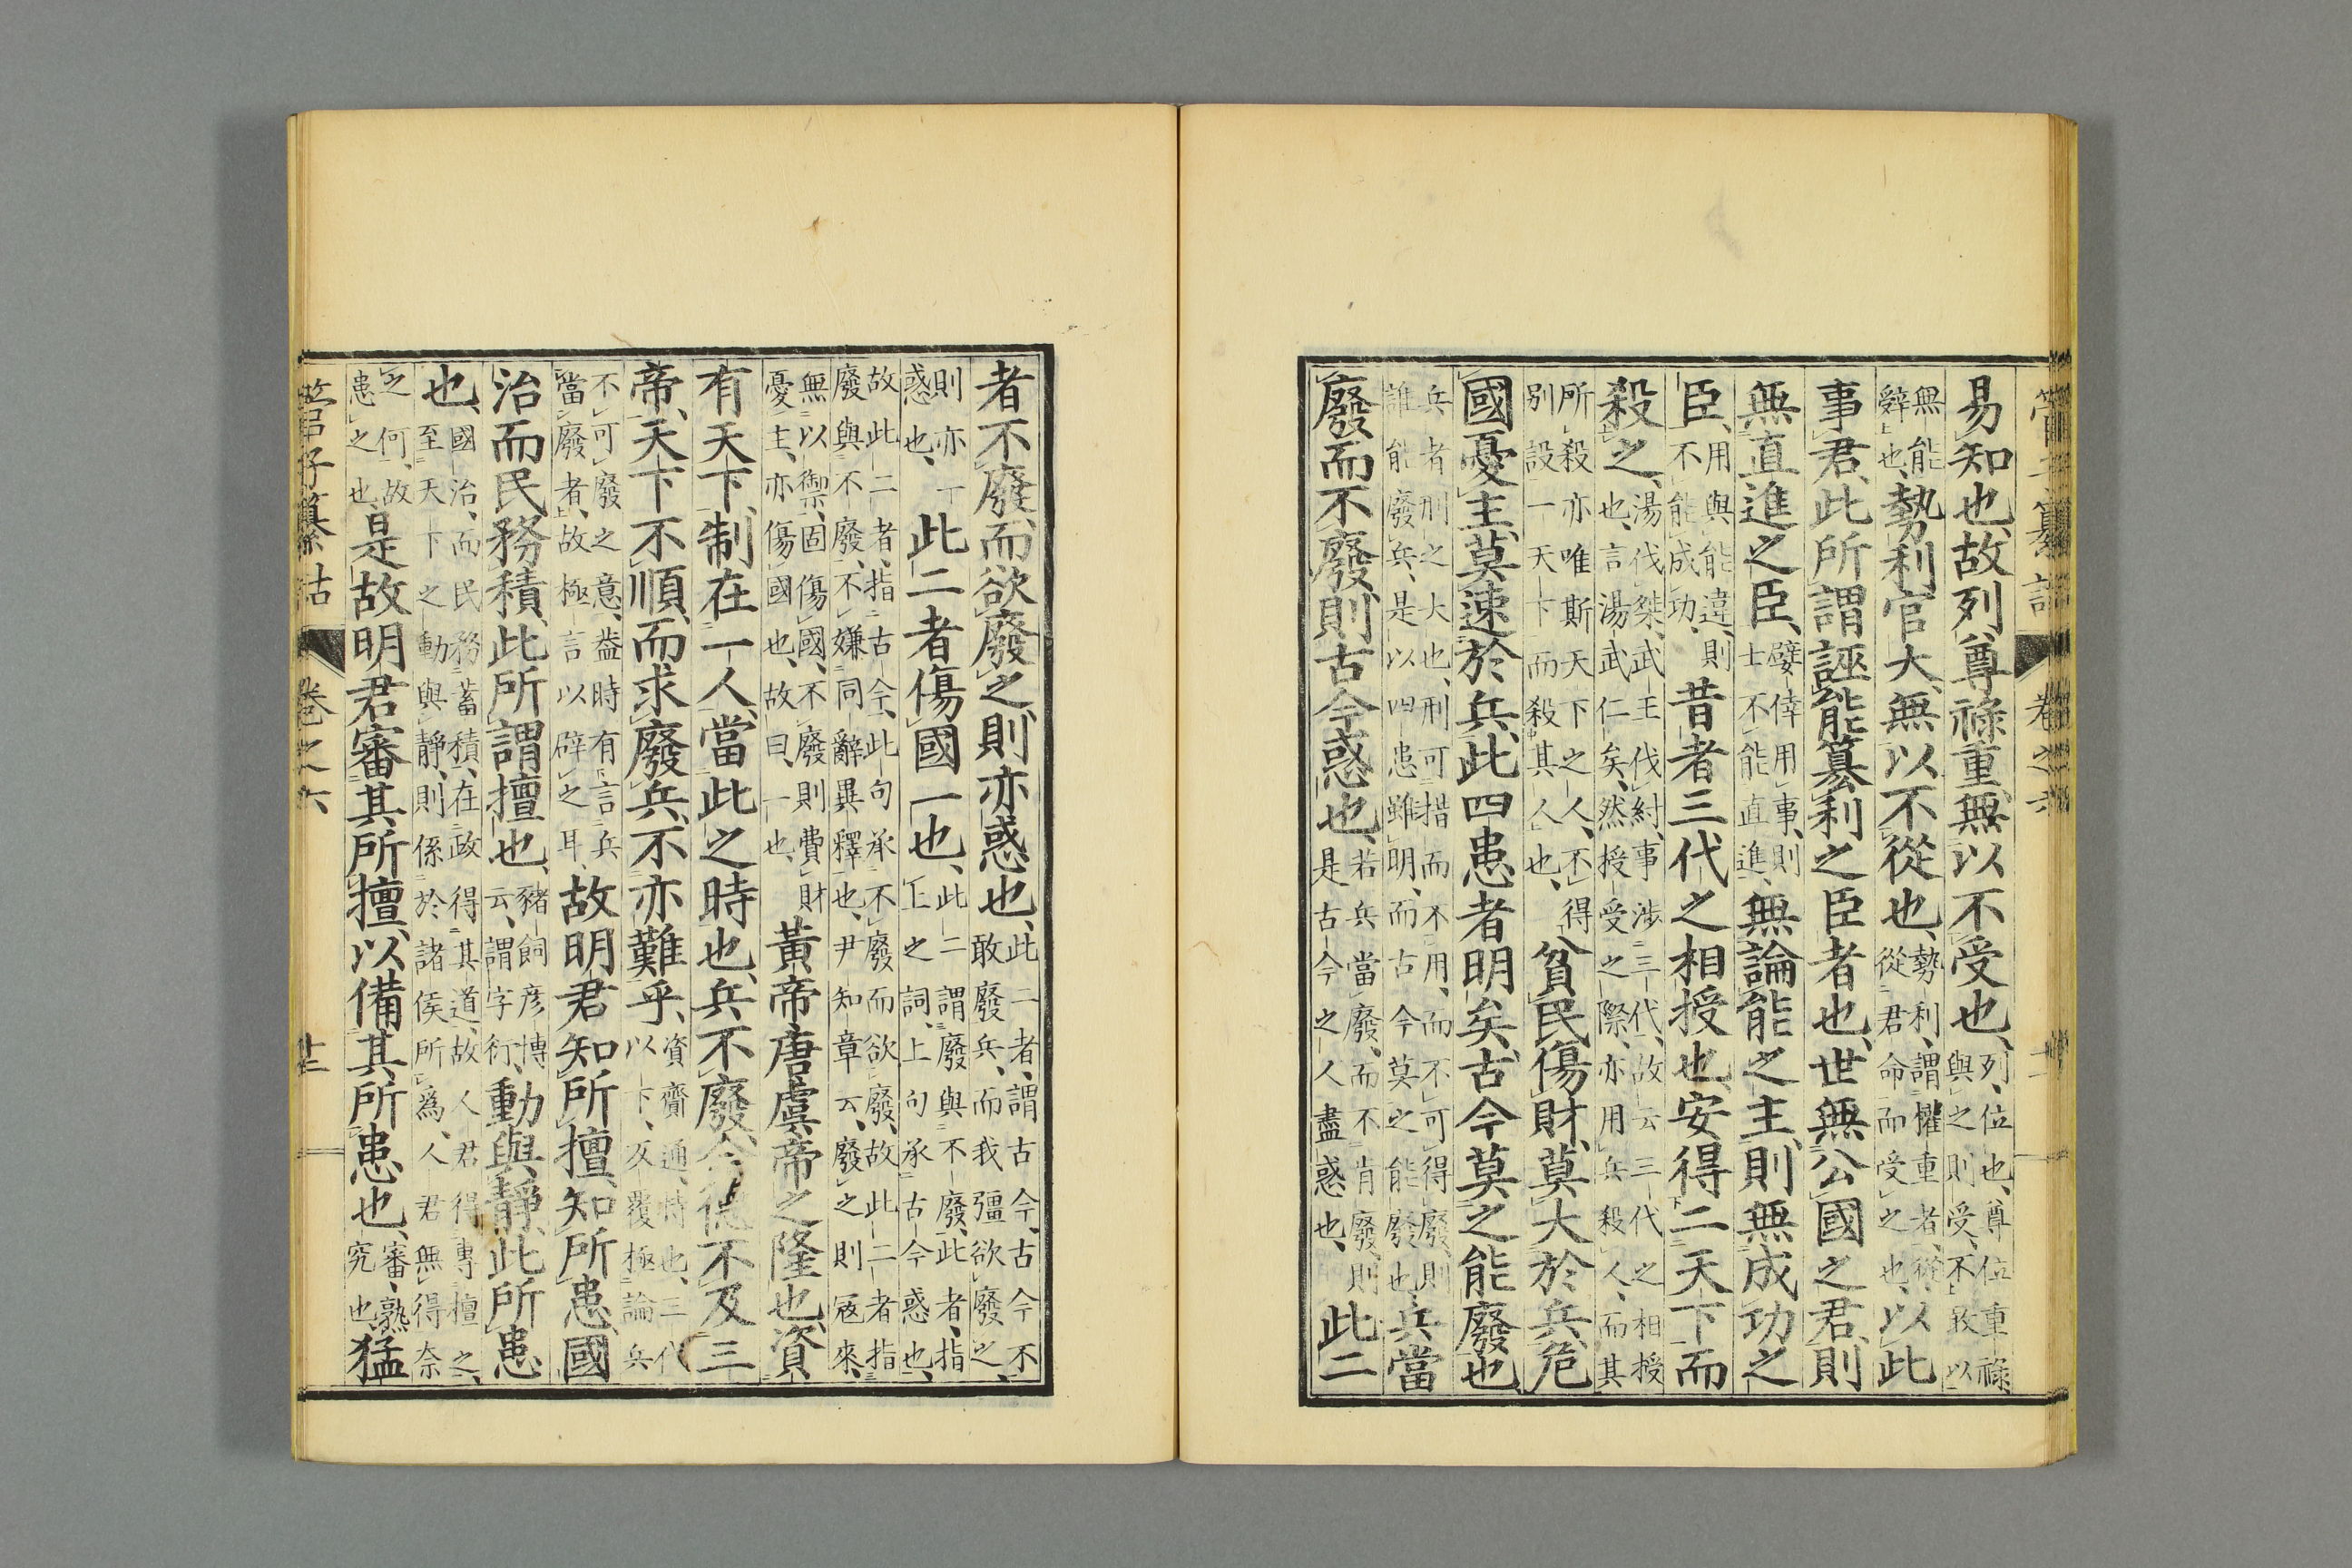 易知也、故列尊祿重、無以不受也、列、位也、尊位重祿與之則受、不敢以
無能辭也、勢利官大、無以不從也、勢利、謂權重者、從從君命而受之也、以此
事君、此所謂誣能篡利之臣者也、世無公國之君、則
無直進之士、嬖倖用事、則臣不能直進、無論能之主、則無成功之
臣、用與能違、則不能成功、昔者三代之相授也、安得二天下而
殺之、湯伐桀、武王伐紂、事涉三代、故云三代之相授也、言湯武仁矣、然授受之際、亦用兵殺人、而其
所殺亦唯斯天下之人、不得別設一天下而殺其人也、貧民傷財、莫大於兵、危
國憂主、莫速於兵、此四患者明矣、古今莫之能廢也、
兵者刑之大也、刑可措而不用、而不可得廢、則誰能廢兵、是以四患雖明、而古今莫之能廢也、兵當
廢而不廢、則古今惑也、若兵當廢、而不肯廢、則是古今之人盡惑也、此二
者不廢、而欲廢之、則亦惑也、此二者、謂古今、古今不敢廢兵、而我彊欲廢之、
則亦惑也、此二者傷國一也、此二謂廢與不廢、此者、指上之詞、上句承古今惑也、
故此二者、指古今、此句承不廢而欲廢、故此二者指廢與不廢、不嫌同辭異釋也、尹知章云、廢之則寇來、
無以禦、固傷國、不廢則費財憂主、亦傷國也、故曰、一也、黃帝唐虞帝之隆也、資
有天下、制在一人、當此之時也、兵不廢、今德不及三
帝、天下不順、而求廢兵、不亦難乎、資齎通、時也、三代以下、反覆極論兵
不可廢之意、蓋時有言兵當廢者、故極言以辟之耳、故明君知所擅、知所患、國
治而民務積、此所謂擅也、豬飼彦博云、謂字衍、動與靜、此所患
也、國治、而民務蓄積、在政得其道、故人君得專擅之、至天下之動與靜、則係於諸侯所爲、人君無得奈
之何、故患之也、是故明君審其所擅、以備其所患也、審、熟究也、猛
管子纂詁 卷之六 廿三